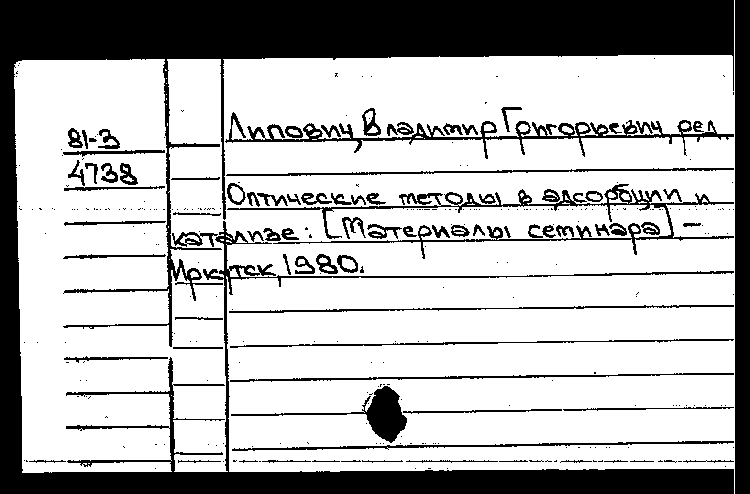 81-3
4738
Липович, Владимир Григорьевич, ред.
Оптические методы в адсорбции и
катализе: [Материалы семинара] –
Иркутск, 1980.